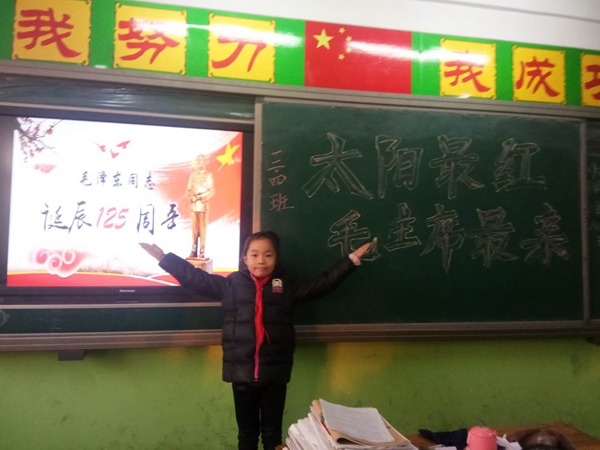 我努力 我成功
毛泽东同志
诞辰125周年
Hisense
四班
太阳最红
毛主席最亲